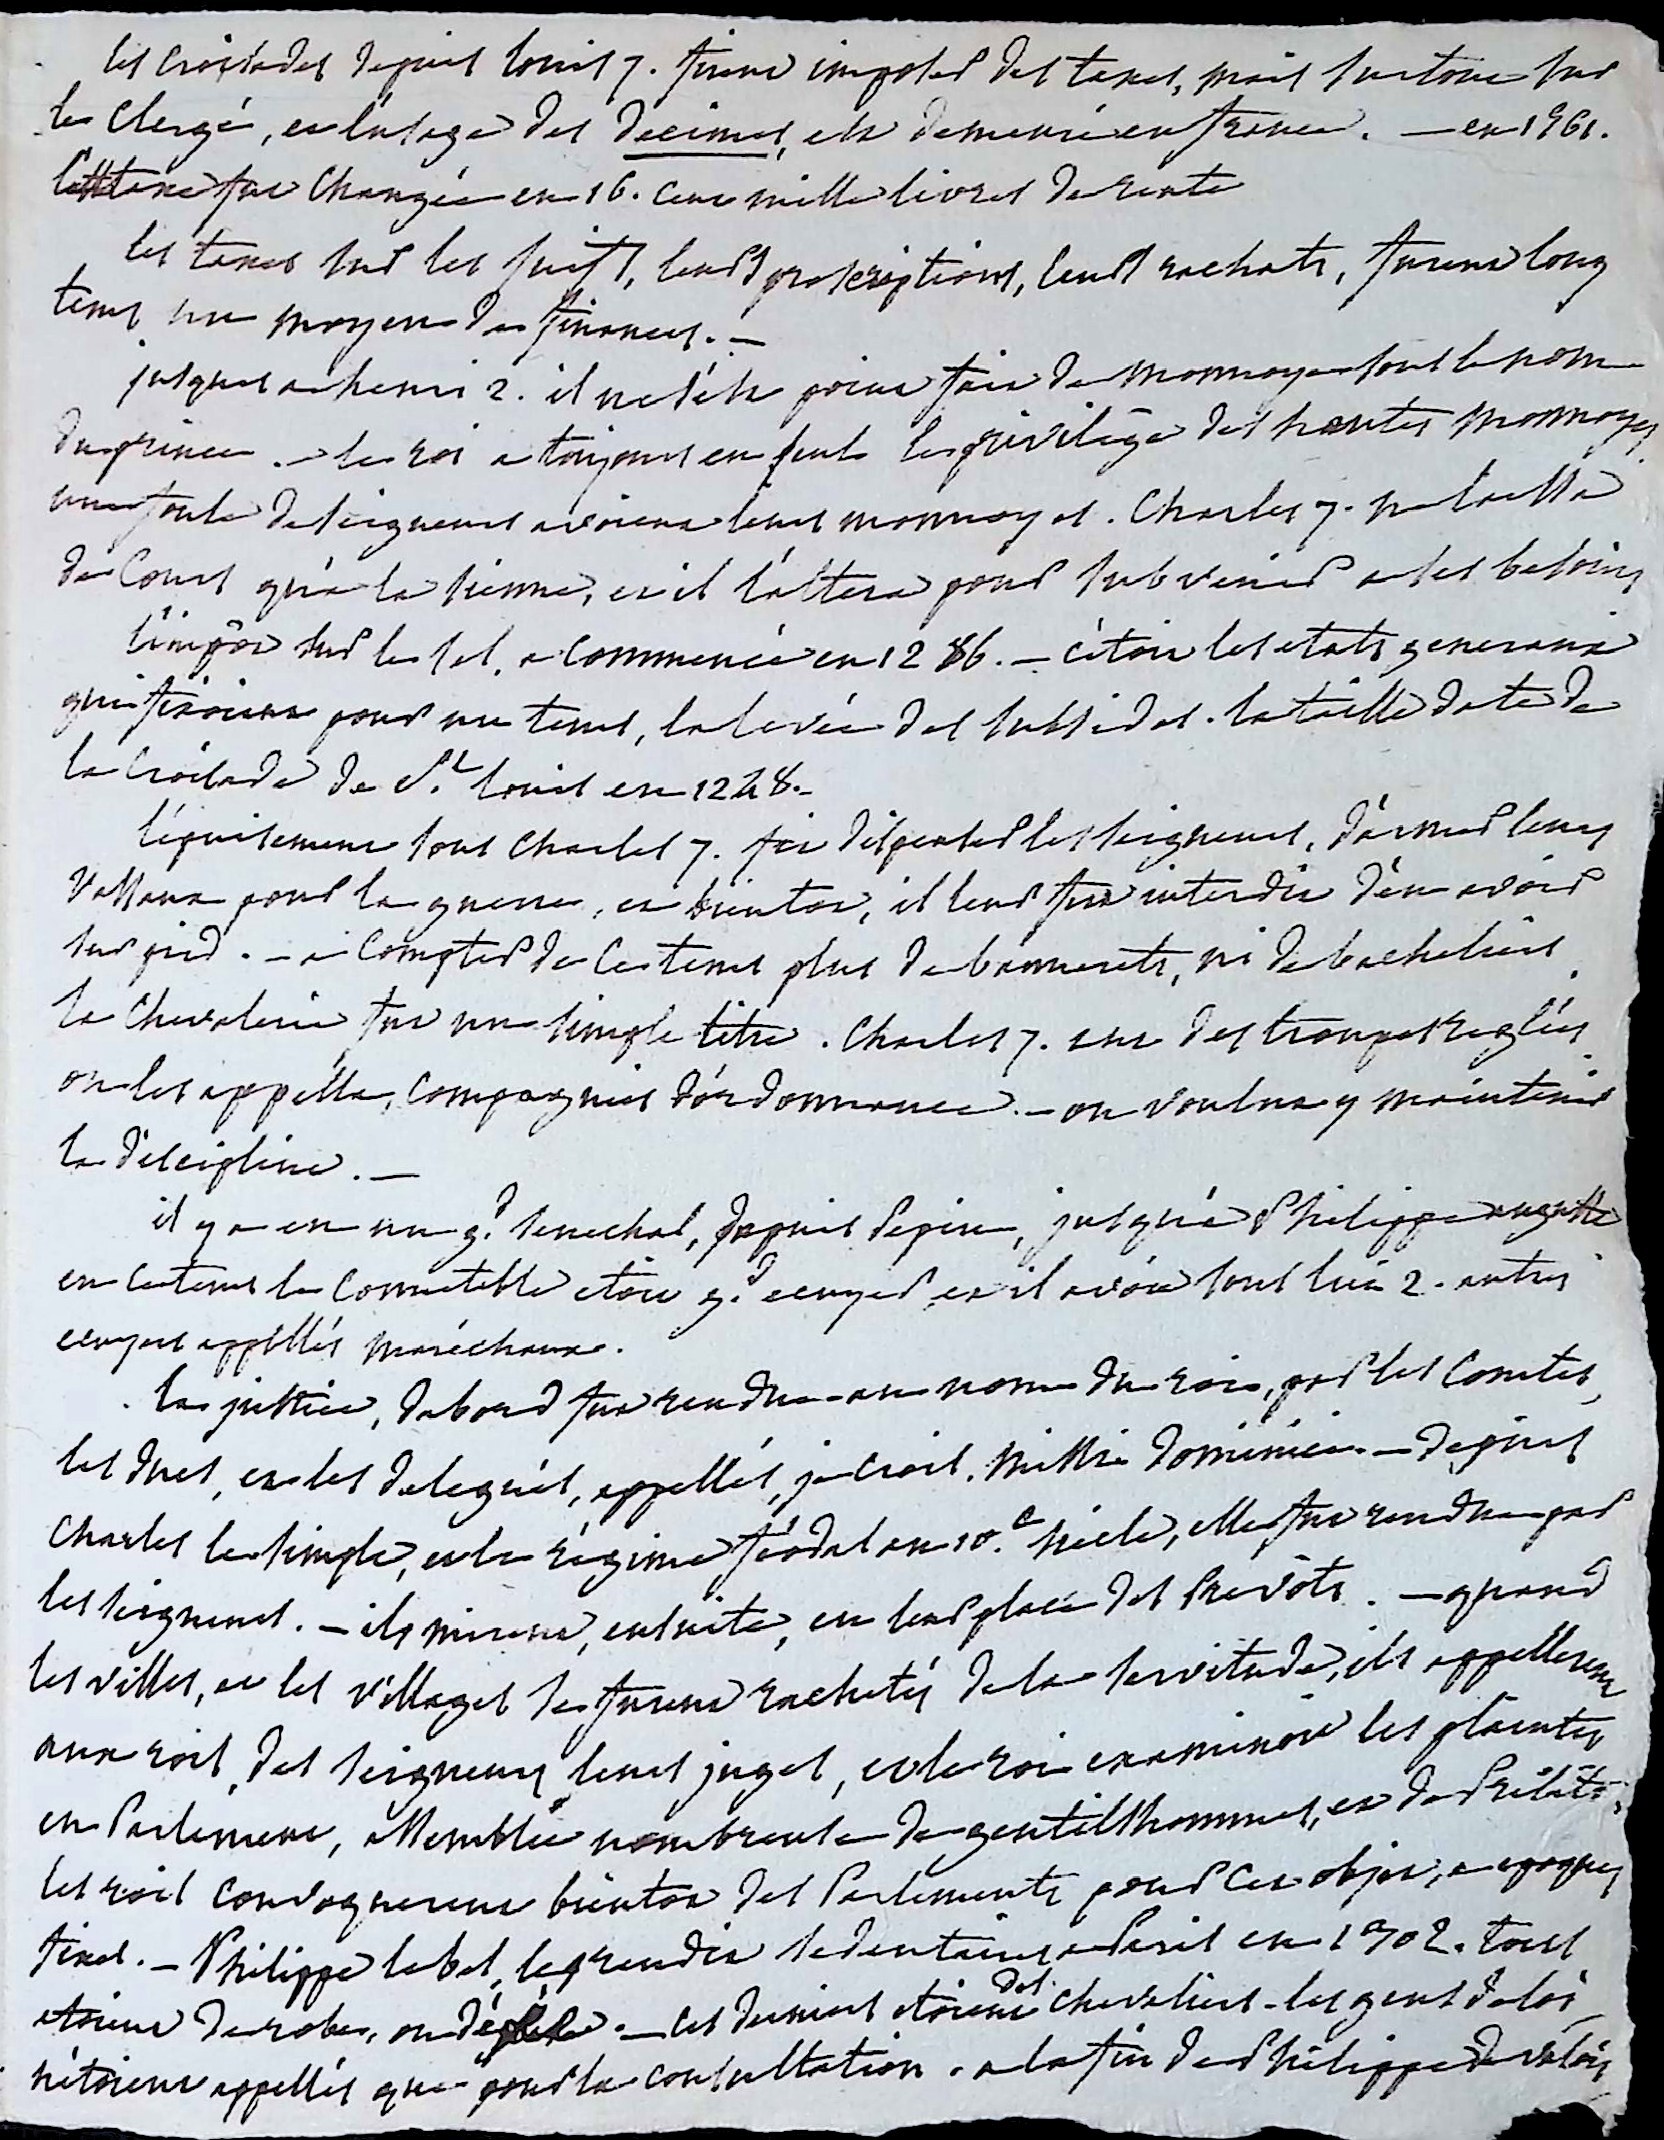 les croisades depuis louis 7. firent imposer des taxes, mais surtout sur
le clergé, et l'usage des decimes, est demeuré en france. — en 1561.
cette taxe fut changée en 16. cent mille livres de rente
les taxes sur les juifs, leurs proscriptions, leurs rachats, furent long
tems un moyen de finances. —
jusques a henri 2. il ne s'est point fait de monnoye sous le nom
du prince. — le roi a toujours eu seul le privilège des hautes monnoyes,
une foule de seigneurs avoient leurs monnoyes. Charles 7. ne laissa
de cours qu'a la sienne, et il l'altera pour subvenir a ses besoins
l'impôt sur le sel, a commencé en 1286. — c'étoit les etats generaux
qui fixoient pour un tems, la levée des subsides. la taille date de
la croisade de St. louis en 1248. —
l'épuisement sous Charles 7. fit dispenser les seigneurs, d'armer leurs
vassaux pour la guerre, et bientot, il leur fut interdit d'en avoir
sur pied. — a compter de ce tems plus de bannerets, ni de bacheliers,
la chevalerie fut un simple titre. Charles 7. eut des troupes reglées
on les appella, compagnies d'ordonnance. — on voulut y maintenir
la discipline. —
il y a eu un gd. senechal, depuis Pepin, jusqu'a Philippe auguste
en ce tems le connetable etoit gd. ecuyer, et il avoit sous lui 2. autres
ecuyers appellés maréchaux.
la justice, dabord fut rendue au nom du roi, par les Comtes,
les ducs, et les delegués, appellés, je crois, missi dominici. — depuis
Charles le simple, et le régime féodal au 10.e siècle, elle fut rendue par
les seigneurs. — ils mirent, ensuite, en leur place des Prevôts. — quand
les villes, et les villages se furent rachetés de la servitude, ils appellerent
aux rois, des seigneurs leurs juges, et le roi examinoit les plaintes
en Parlement, assemblée nombreuse de gentilshommes, et de Prélats.
les rois convoquerent bientot des Parlements pour cet objet, a epoques
fixes. — Philippe le bel, les rendit sedentaires a Paris en 1302. tous
etoient de robe, ou d'épée. — ces derniers etoient des chevaliers. les gens de loi
n'étoient appellés que pour la consultation. a la fin de Philippe de valois